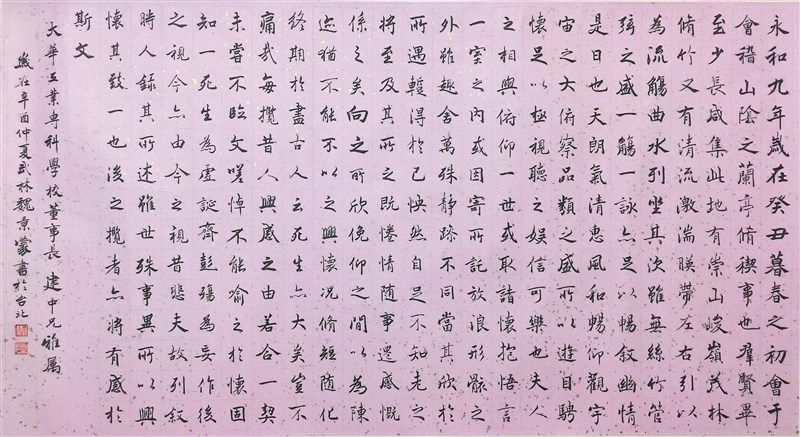 永和九年歲在癸丑暮春之初會于
會稽山陰之蘭亭脩稧事也羣賢畢
至少長咸集此地有崇山峻嶺茂林
脩竹又有清流激湍暎帶左右引以
為流觴曲水列坐其次雖無絲竹管
弦之盛一觴一詠亦足以暢叙幽情
是日也天朗氣清惠風和暢仰觀宇
宙之大俯察品類之盛所以遊目騁
懷足以極視聽之娛信可樂也夫人
之相與俯仰一世或取諸懷抱悟言
一室之內或因寄所託放浪形骸之
外雖趣舍萬殊靜躁不同當其欣於
所遇蹔得於己怏然自足不知老之
將至及其所之既惓情隨事遷感慨
係之矣向之所欣俛仰之間以為陳
迹猶不能不以之興懷況脩短隨化
終期於盡古人云死生亦大矣豈不
痛哉每攬昔人興感之由若合一契
未嘗不臨文嗟悼不能喻之於懷固
知一死生為虛誕齊彭殤為妄作後
之視今亦由今之視昔悲夫故列叙
時人錄其所述雖世殊事異所以興
懷其致一也後之攬者亦將有感於
斯文
大華工業專科學校董事長 建中兄雅屬
歲在辛酉仲夏武林魏景蒙書於台北